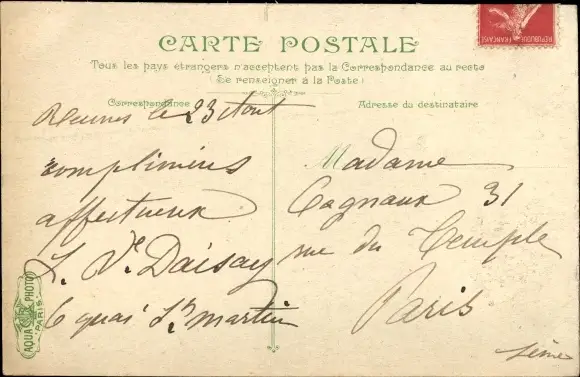 RÉPUBLIQUE FRANÇAISE
CARTE POSTALE
Tous les pays étrangers n'acceptent pas la Correspondance au recto
(Se renseigner à la Poste)
Correspondance
Adresse du destinataire
Rennes le 23 Aout
compliments
affectueux
6 quai St martin
Madame
Cagnaux 31
rue du Temple
Paris
Seine
AQUA PHOTO
PARIS